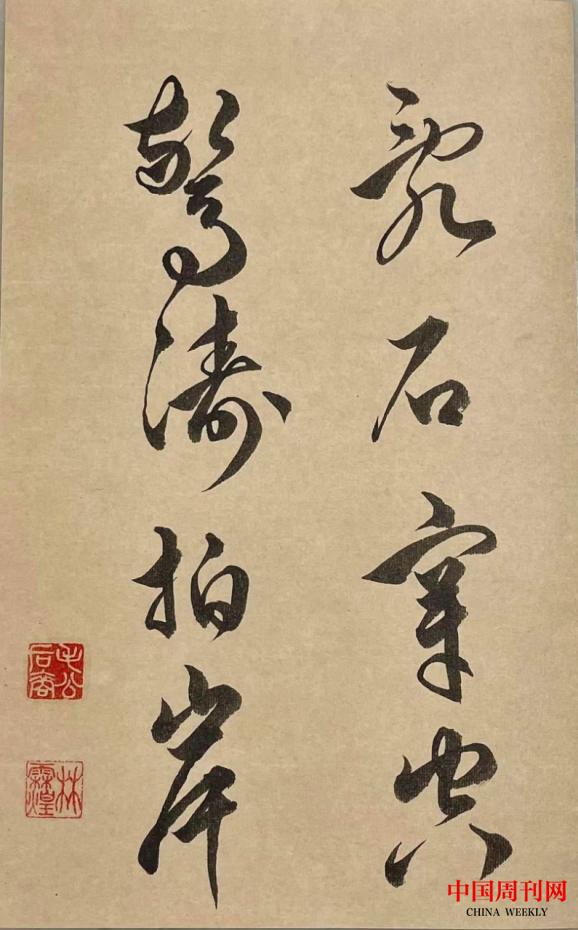 亂石穿空
驚濤拍岸
中国周刊网
CHINA WEEKLY